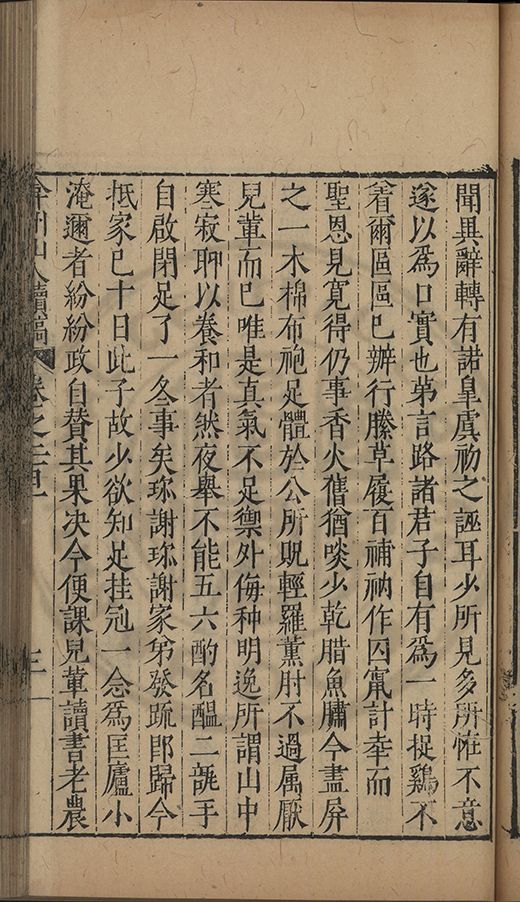 聞異辭轉有諾皐虞初之誣耳少所見多所恠不意
遂以爲口實也苐言路諸君子自有爲一時捉鷄不
着爾區區已辦行縢草履百補衲作囚竄計幸而
聖恩見寬得仍事香火舊猶啖少乾腊魚鱐今盡屏
之一木棉布袍足體於公所貺輕羅薰肘不過属厭
兒輩而已唯是真氣不足禦外侮种明逸所謂山中
寒寂聊以養和者然夜舉不能五六酌名醞二瓻手
自啟閉足了一冬事矣珎謝珎謝家弟發䟽即歸今
抵家已十日此子故少欲知足挂冠一念爲匡廬小
淹邇者紛紛政自賛其果决今便課兒輩讀書老農
弇州山人續稿 卷之